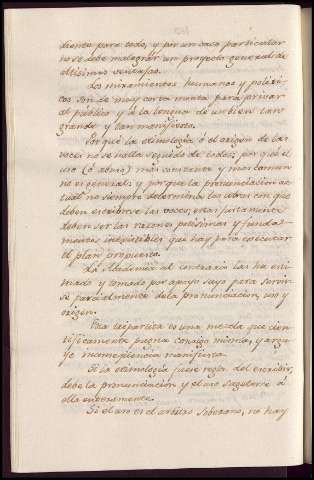 dienta para todo, y por un caso particular
no se debe malograr un proyecto general de
altisimas ventajas.
Los miramientos humanos y politi-
cos son de muy corta monta para privar
al publico y á la lengua de un bien tan
grande y tan manifiesto.
Por que la etimología ó el origen de las
voces no se halla seguido de todos; por que el
uso (ó abuso) mas constante y mas comun
no es general; y por que la pronunciacion ac-
tual no siempre determina las letras con que
deben escribirse las voces, esas justamente
deben ser las razones potisimas y funda-
mentos inequivocos que hay para executar
el plan propuesto.
La Academia al contrario las ha esti-
mado y tomado por apoyo suyo para servir-
se parcialmente de la pronunciacion, uso y
origen.
Esta tripartita es una mezcla que cien-
tificamente pugna consigo misma, y argu-
ye inconseqüencia manifiesta.
Si la etimología fuese regla del escribir,
debe la pronunciacion y el uso sugetarse á
ella enteramente.
Si el uso es el arbitro soberano, no hay